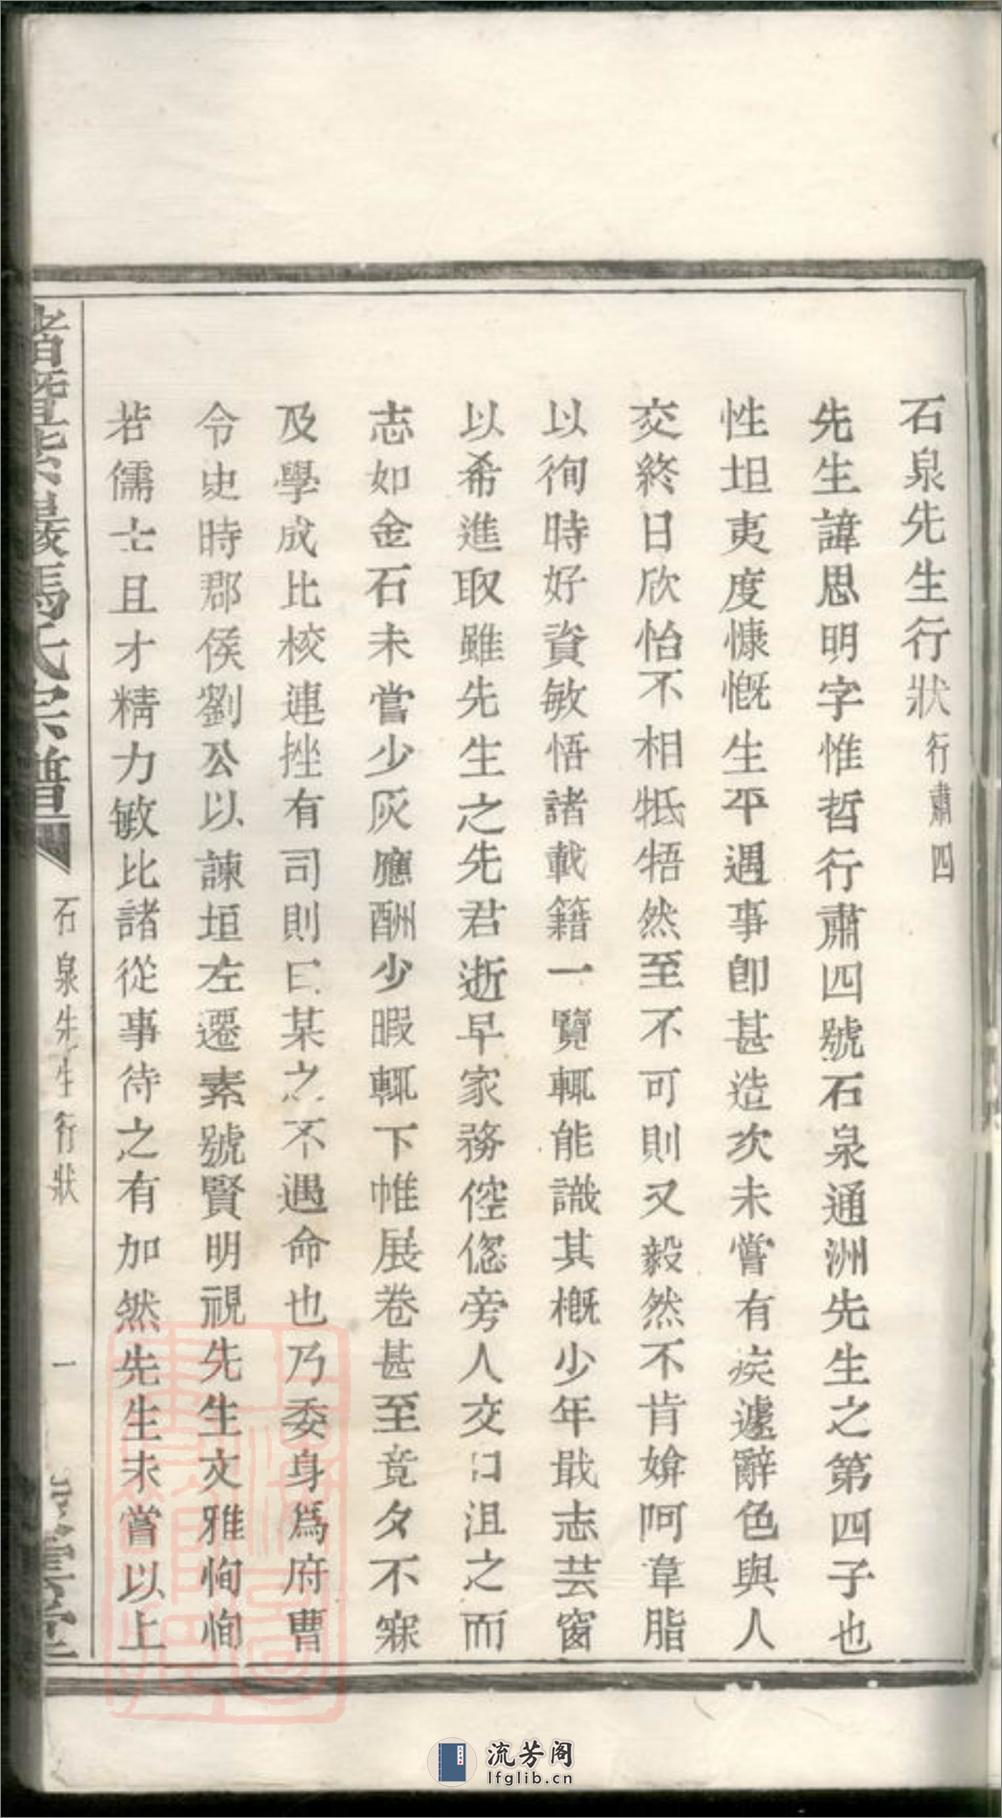 石泉先生行狀行肅四
先生諱思明字惟哲行肅四號石泉通洲先生之第四子也
性坦夷度慷慨生平遇事卽甚造次未嘗有疾遽辭色與人
交終日欣怡不相牴牾然至不可則又毅然不肯媕阿韋脂
以徇時好資敏悟諸載籍一覽輒能識其槪少年戢志芸窗
以希進取雖先生之先君逝早家務倥偬旁人交口沮之而
志如金石未嘗少灰應酬少暇輒下帷展卷甚至竟夕不寐
及學成比校連挫有司則曰某之不遇命也乃委身爲府曹
令史時郡侯劉公以諫垣左遷素號賢明視先生文雅恂恂
若儒士且才精力敏比諸從事待之有加然先生未嘗以上
諸暨紫巖馬氏宗譜
石泉先生行狀
一
堂
流芳阁
lfglib.cn